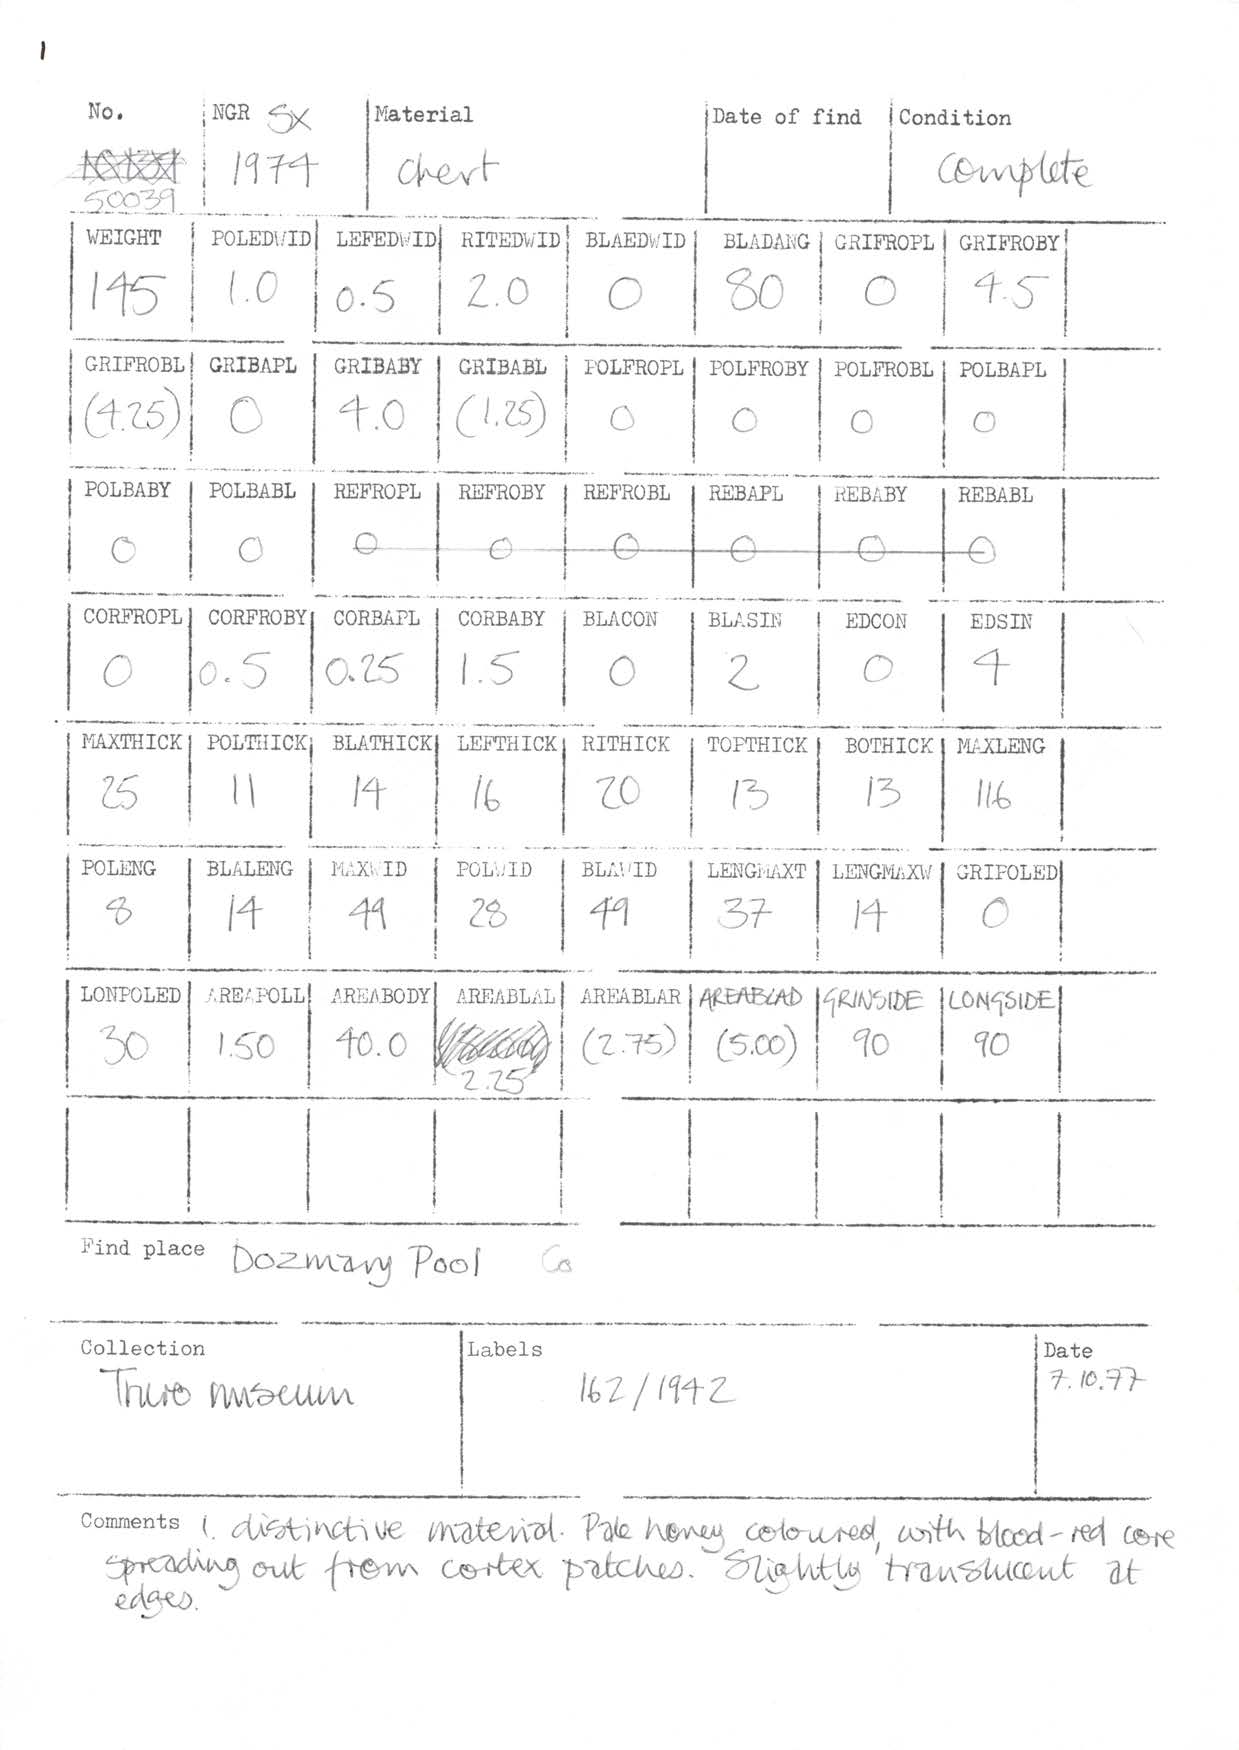 1
No. NGR SX Material Date of find Condition
50039 1974 chert complete
WEIGHT POLEDWID LEFEDWID RITEDWID BLAEDWID BLADANG GRIFROPL GRIFROBY
145 1.0 0.5 2.0 0 80 0 4.5
GRIFROBL GRIBAPL GRIBABY GRIBABL POLFROPL POLFROBY POLFROBL POLBAPL
(4.25) 0 4.0 (1.25) 0 0 0 0
POLBABY POLBABL REFROPL REFROBY REFROBL REBAPL REBABY REBABL
0 0 0 0 0 0 0 0
CORFROPL CORFROBY CORBAPL CORBABY BLACON BLASIN EDCON EDSIN
0 0.5 0.25 1.5 0 2 0 4
MAXTHICK POLTHICK BLATHICK LEFTHICK RITHICK TOPTHICK BOTHICK MAXLENG
25 11 14 16 20 13 13 116
POLENG BLALENG MAXWID POLWID BLAWID LENGMAXT LENGMAXW GRIPOLED
8 14 49 28 49 37 14 0
LONPOLED AREAPOLL AREABODY AREABLAL AREABLAR AREABLAD GRINSIDE LONGSIDE
30 1.50 40.0 2.25 (2.75) (5.00) 90 90
Find place Dozmary Pool Co
Collection Labels Date
Truro museum 162/1942 7.10.77
Comments 1. distinctive material. Pale honey coloured, with blood-red core
spreading out from cortex patches. Slightly translucent at
edges.